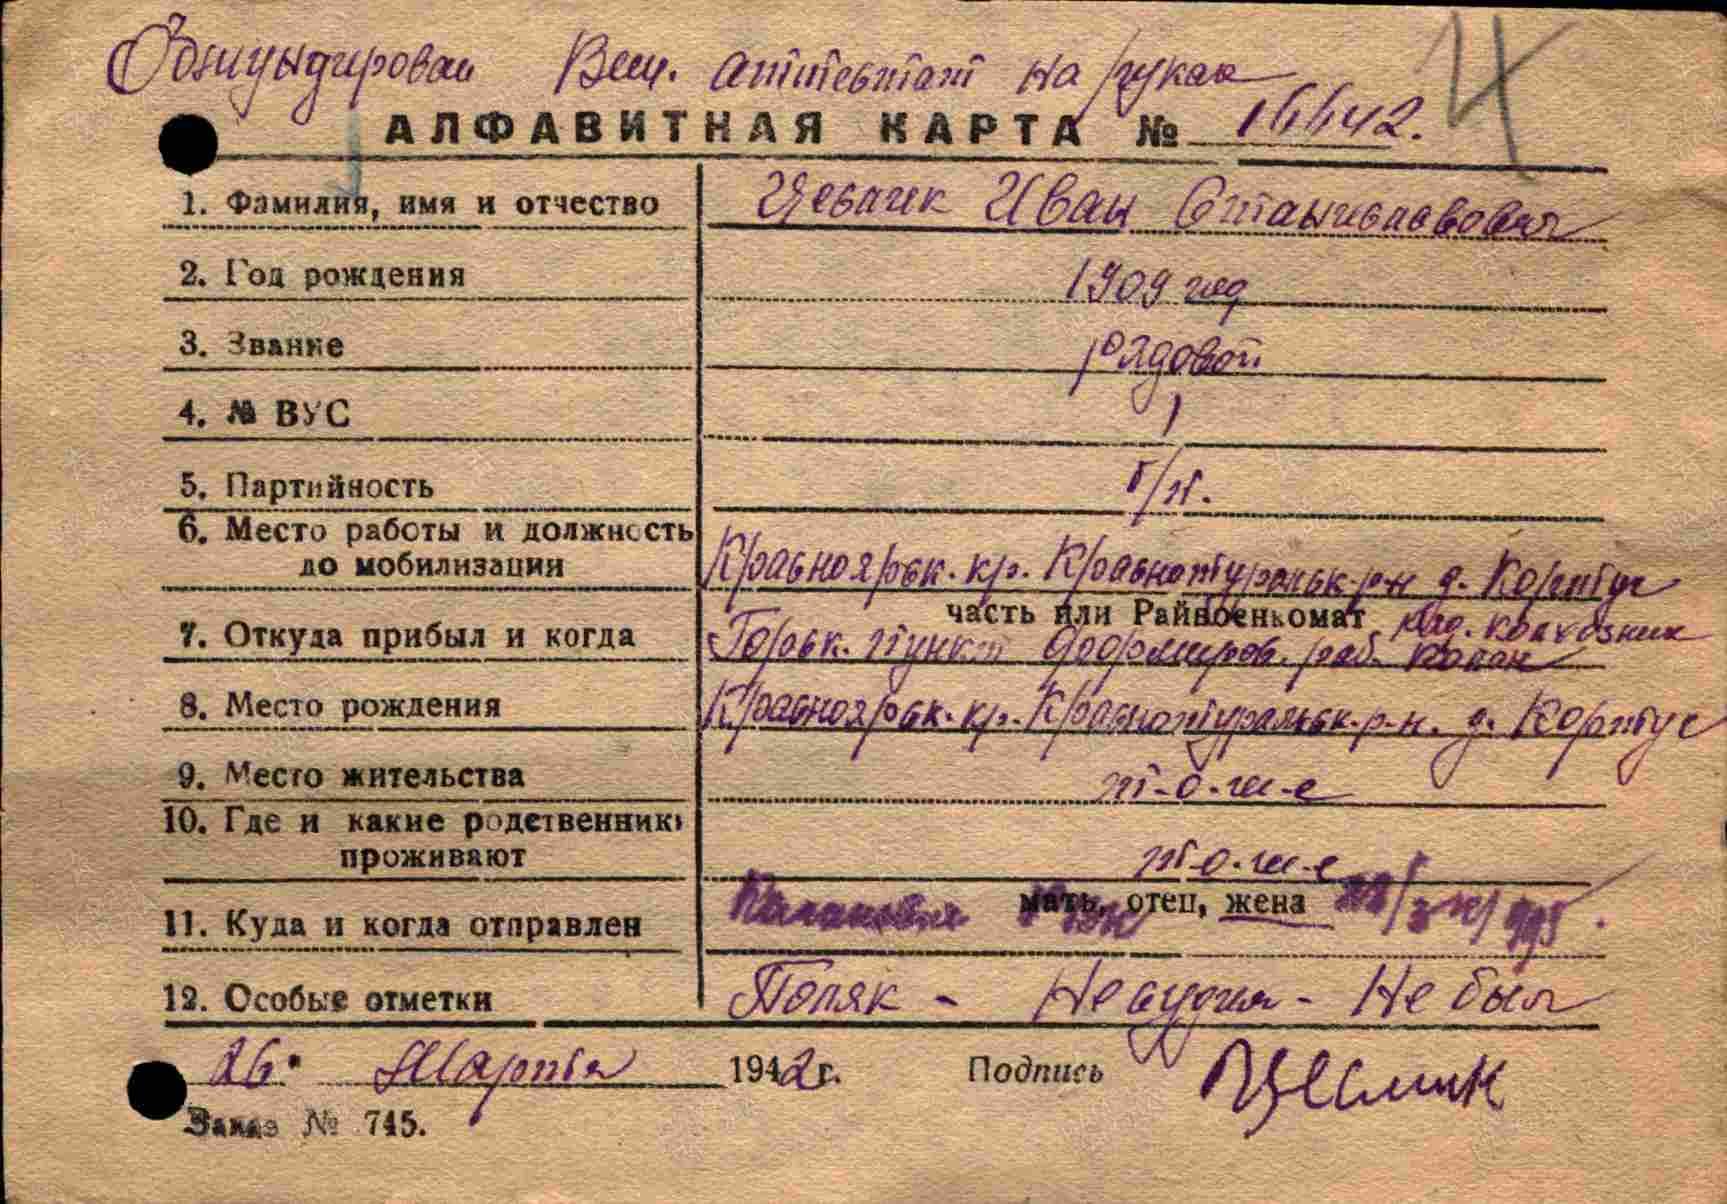 Обмундирован Вещ. аттестат на руках
АЛФАВИТНАЯ КАРТА № 16642.
1. Фамилия, имя и отчество Иван Станиславович
2. Год рождения 1909 год
3. Звание рядовой
4. № ВУС 1
5. Партийность б/п.
6. Место работы и должность до мобилизации Красноярск. кр. Краснотуранск р-н д. Кортус
часть или Райвоенкомат колхозник
7. Откуда прибыл и когда Горьк. пункт формиров. раб. колон
8. Место рождения Красноярск. кр. Краснотуранск. р-н. д. Кортус
9. Место жительства т-о-ж-е
10. Где и какие родственники проживают т-о-ж-е
мать, отец, жена
11. Куда и когда отправлен
12. Особые отметки Поляк - Не судим - Не был
26. Марта 1942 г. Подпись
Заказ № 745.